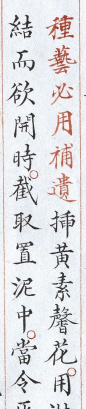 種藝必用補遺插黃素馨花用
結而欲開時截取置泥中當令